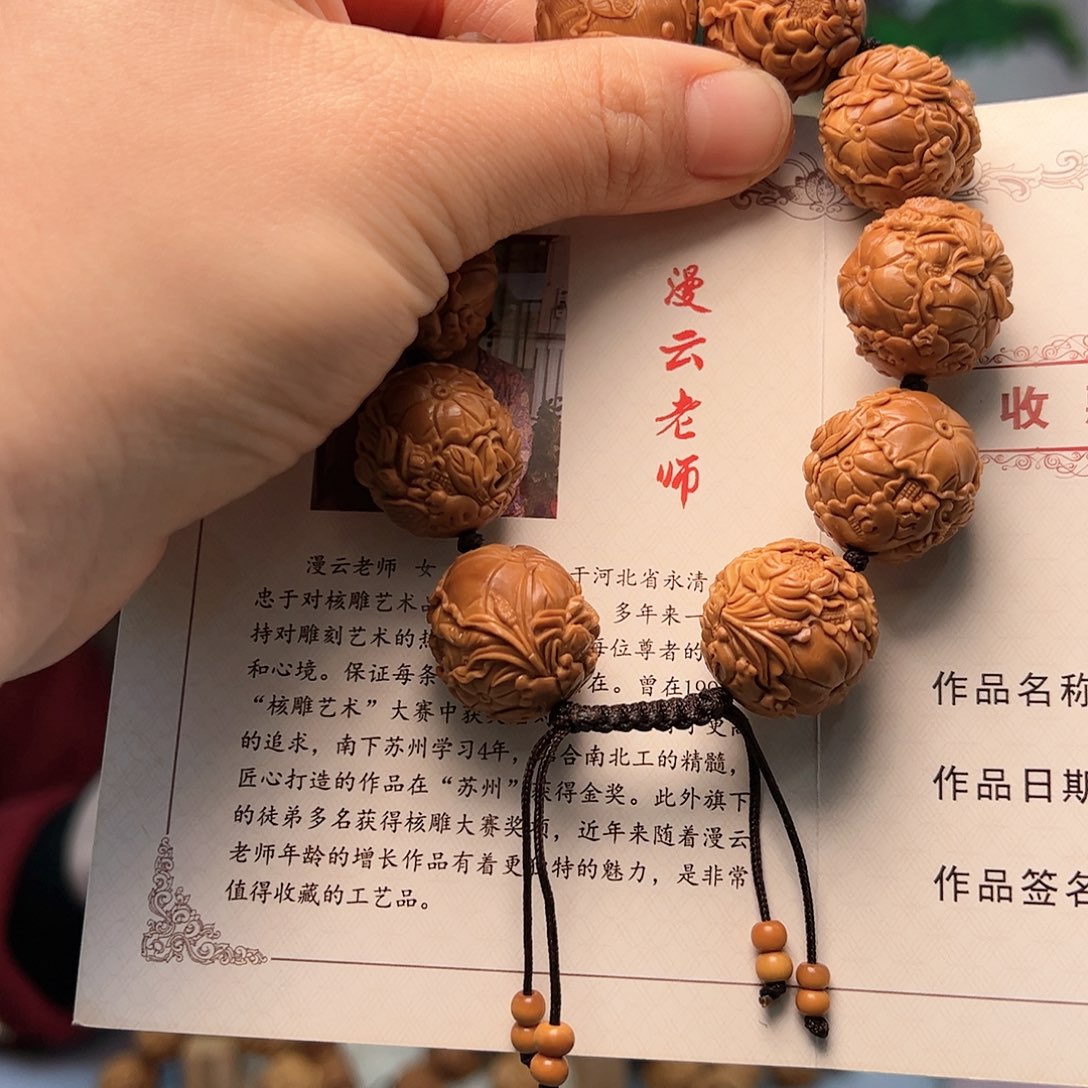 漫云老师
漫云老师 女 于河北省永清
忠于对核雕艺术 多年来一
持对雕刻艺术的 每位尊者的
和心境。保证每条 在。曾在199
“核雕艺术”大赛中获
的追求，南下苏州学习4年， 合南北工的精髓，
匠心打造的作品在“苏州” 获得金奖。此外旗下
的徒弟多名获得核雕大赛奖项，近年来随着漫云
老师年龄的增长作品有着更独特的魅力，是非常
值得收藏的工艺品。
收
作品名称
作品日期
作品签名